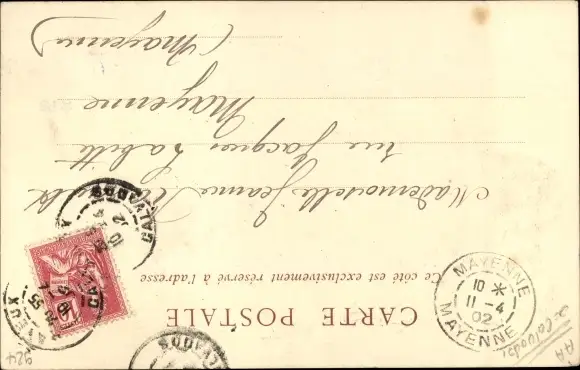 CARTE POSTALE
Ce côté est exclusivement réservé à l'adresse
Mademoiselle Jeanne
rue Jacques Labitte
Mayenne
(Mayenne)
MAYENNE
10 *
11-4
02
MAYENNE
CALVADOS
10
924
AA